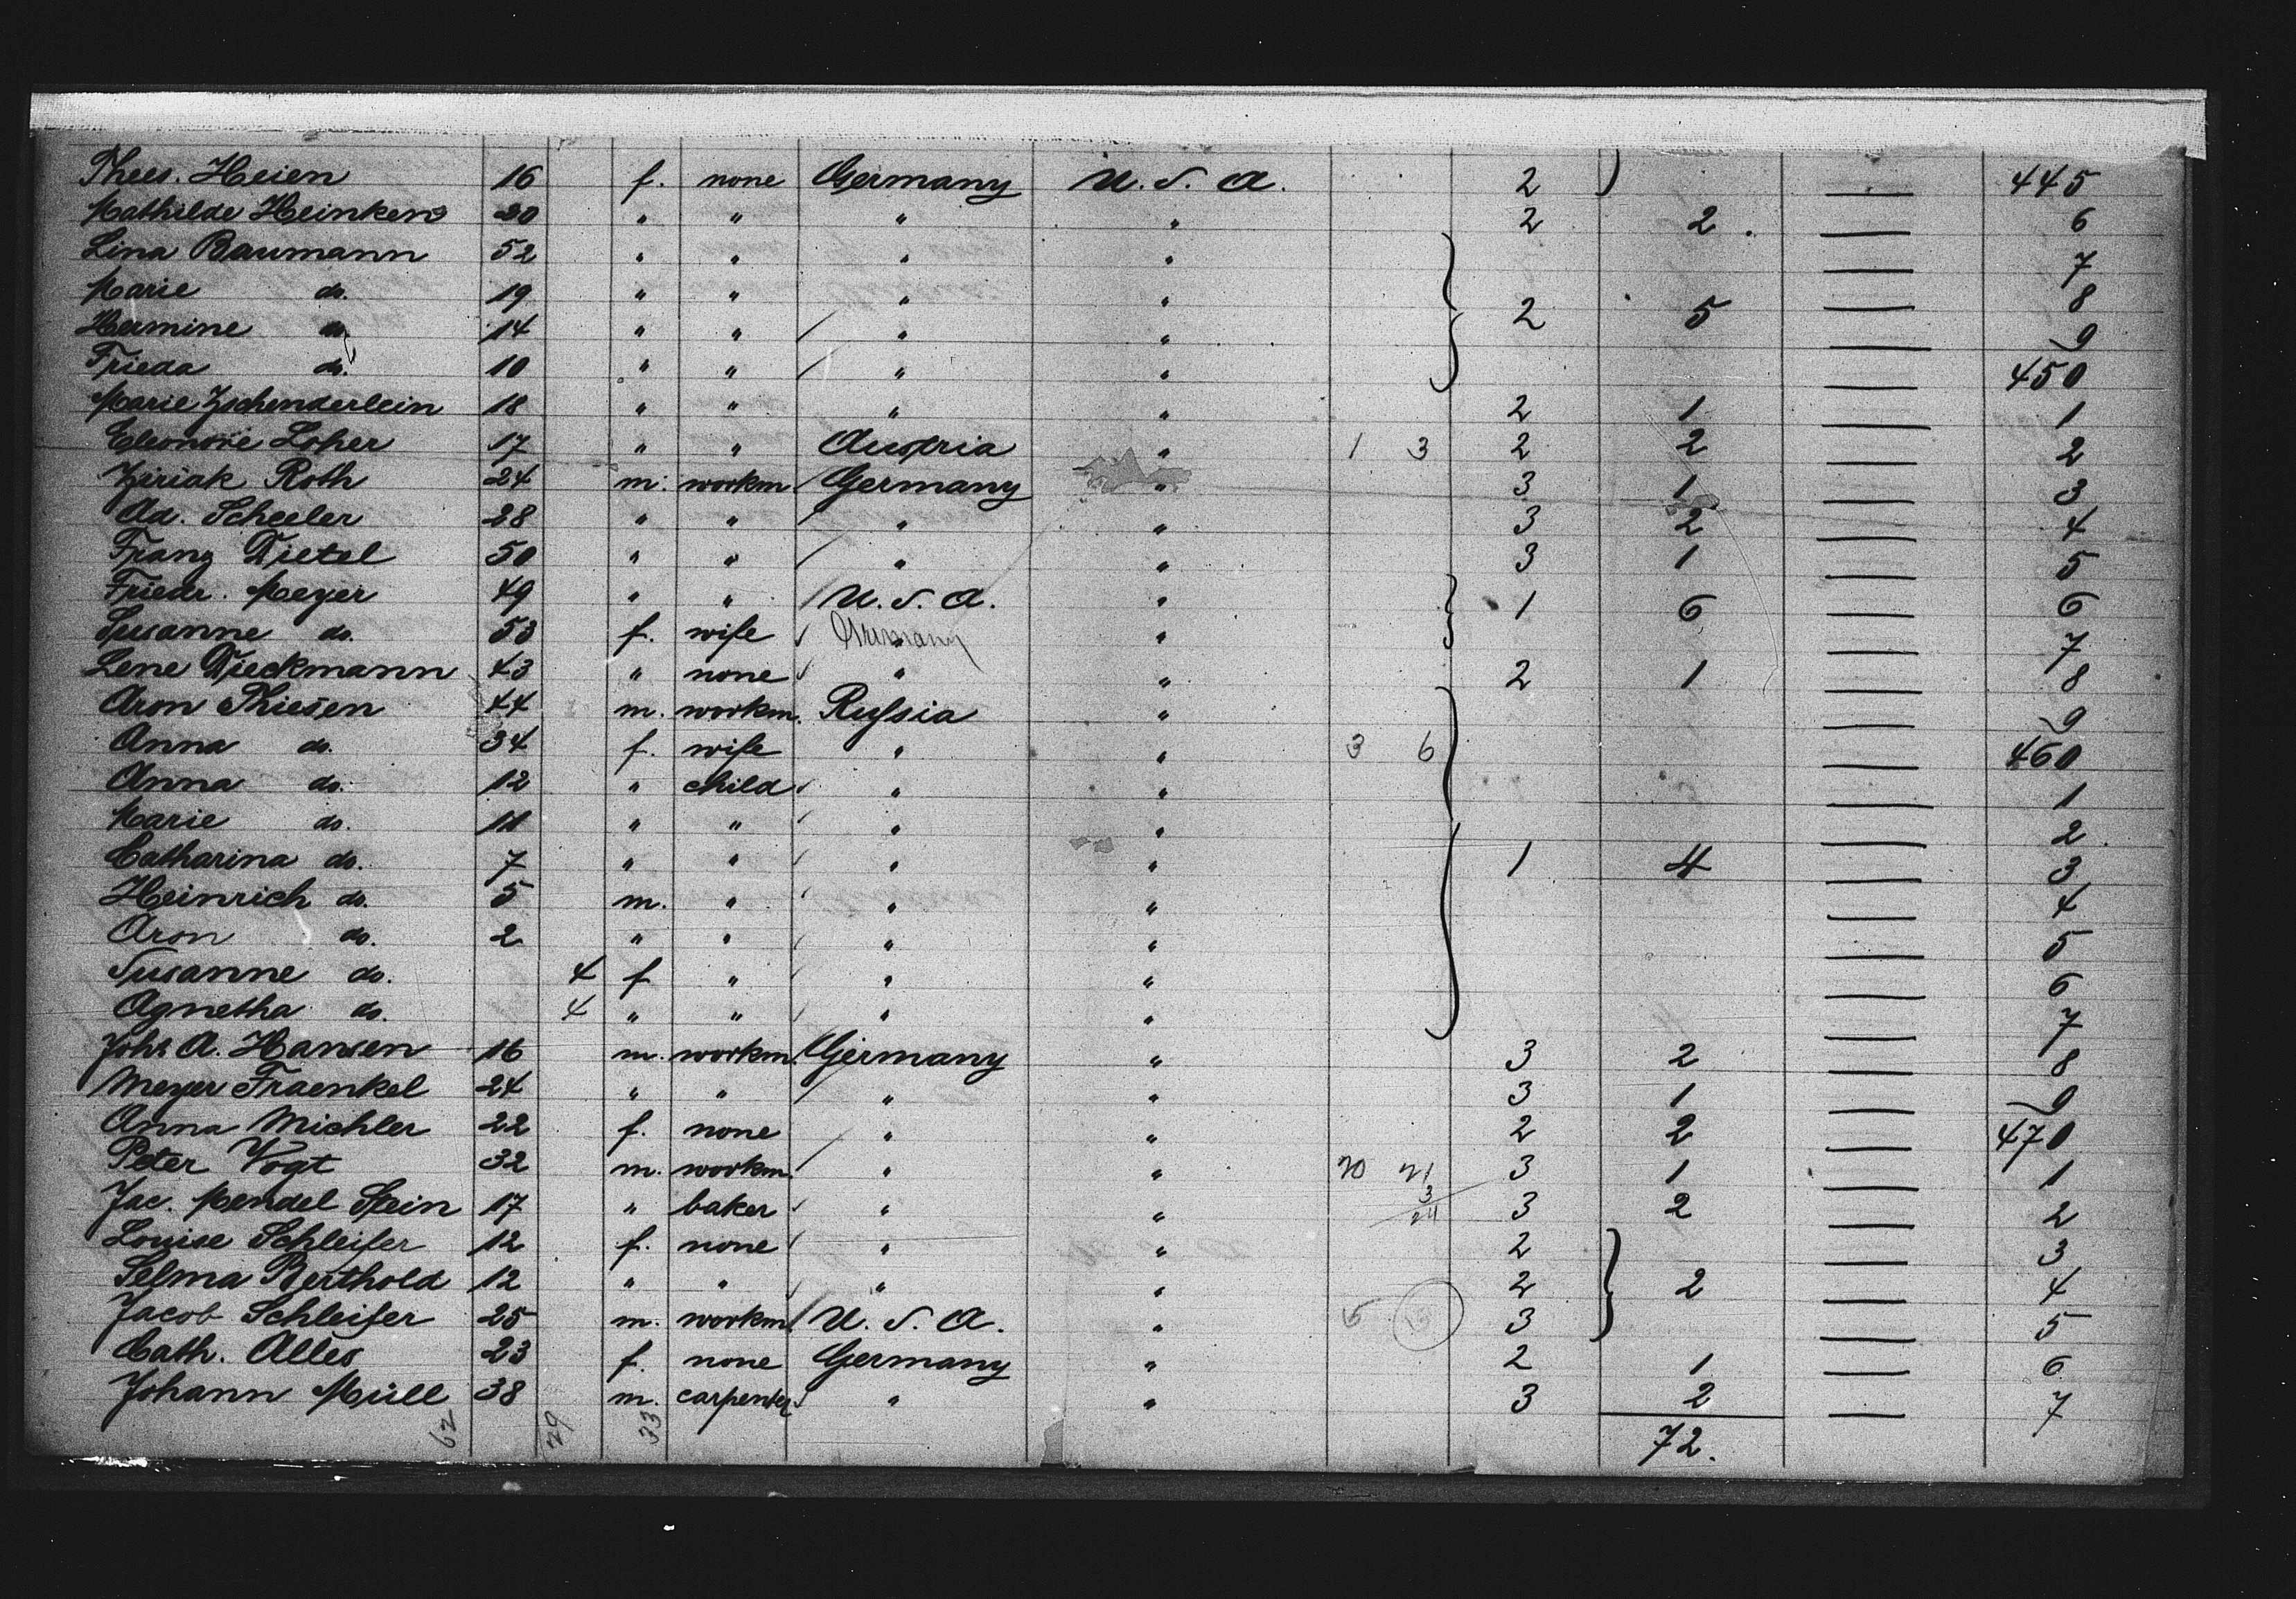 Thees. Heien 16 f. none Germany U. S. A. 2 — 445
Mathilde Heinken 20 " " " " 2 2. — 6
Lina Baumann 52 " " " " — 7
Marie do. 19 " " " " — 8
Hermine do. 14 " " " " 2 5 — 9
Frieda do. 10 " " " " — 450
Marie Zschenderlein 18 " " " " 2 1 — 1
Eleonore Loher 17 " " Austria " 1 3 2 2 — 2
Ziriak Roth 24 m. workm. Germany " 3 1 — 3
Ad. Scheeler 28 " " " " 3 2 — 4
Franz Dietel 50 " " " " 3 1 — 5
Friedr. Meyer 49 " " U. S. A. " 1 6 — 6
Susanne do. 53 f. wife Germany " — 7
Lene Dieckmann 43 " none " " 2 1 — 8
Aron Thiesen 44 m. workm. Russia " — 9
Anna do. 34 f. wife " " 3 6 — 460
Anna do. 12 " child " " — 1
Marie do. 11 " " " " — 2
Catharina do. 7 " " " " 1 4 — 3
Heinrich do. 5 m. " " " — 4
Aron do. 2 " " " " — 5
Susanne do. 4 f " " " — 6
Agnetha do. 4 " " " " — 7
Johs A. Hansen 16 m. workm. Germany " 3 2 — 8
Meyer Fraenkel 24 " " " " 3 1 — 9
Anna Michler 22 f. none " " 2 2 — 470
Peter Vogt 32 m. workm. " " 20 21 3 1 — 1
Jac. Mendel Stein 17 " baker " " 3 24 3 2 — 2
Louise Schleifer 12 f. none " " 2 — 3
Selma Berthold 12 " " " " 2 2 — 4
Jacob Schleifer 25 m. workm. U. S. A. " 3 — 5
Cath. Alles 23 f. none Germany " 2 1 — 6
Johann Müll 38 m. carpenter " " 3 2 — 7
62 29 33 72.